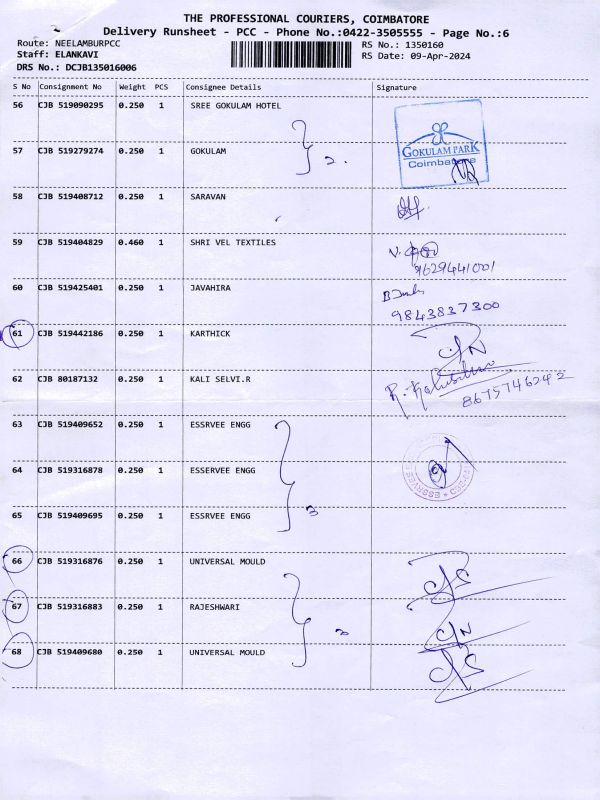 THE PROFESSIONAL COURIERS, COIMBATORE
Delivery Runsheet - PCC - Phone No.:0422-3505555 - Page No.:6
Route: NEELAMBURPCC
RS No.: 1350160
Staff: ELANKAVI
RS Date: 09-Apr-2024
DRS No.: DCJB135016006
S No Consignment No Weight PCS Consignee Details Signature
56 CJB 519090295 0.250 1 SREE GOKULAM HOTEL
GOKULAM PARK
Coimbatore
57 CJB 519279274 0.250 1 GOKULAM
2.
58 CJB 519408712 0.250 1 SARAVAN
59 CJB 519404829 0.460 1 SHRI VEL TEXTILES
9629441001
60 CJB 519425401 0.250 1 JAVAHIRA
9843837300
61 CJB 519442186 0.250 1 KARTHICK
C/N
62 CJB 80187132 0.250 1 KALI SELVI.R
8675746242
63 CJB 519409652 0.250 1 ESSRVEE ENGG
64 CJB 519316878 0.250 1 ESSERVEE ENGG
65 CJB 519409695 0.250 1 ESSRVEE ENGG
3
66 CJB 519316876 0.250 1 UNIVERSAL MOULD
C/S
67 CJB 519316883 0.250 1 RAJESHWARI
C/N
68 CJB 519409680 0.250 1 UNIVERSAL MOULD
C/S